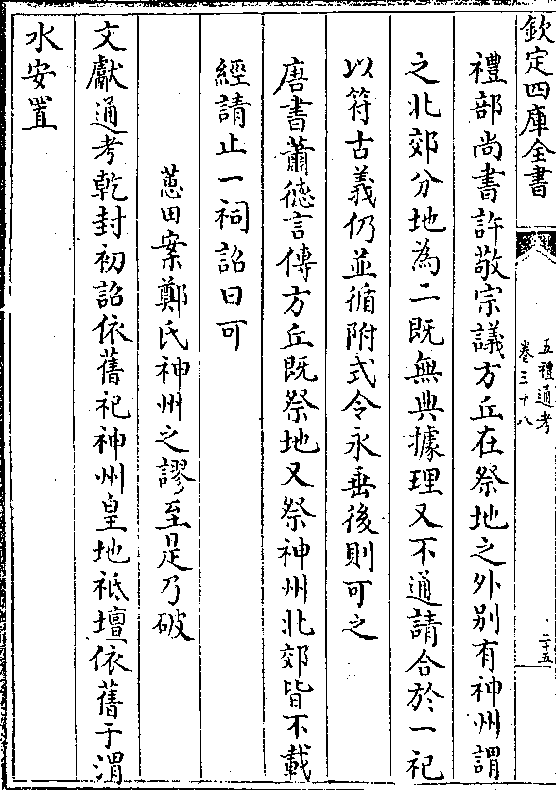 欽定四庫全書
五禮通考
卷三十八
二十五
禮部尚書許敬宗議方丘在祭地之外别有神州謂
之北郊分地為二既無典據理又不通請合於一祀
以符古義仍並循附式令永垂後則可之
唐書蕭德言傳方丘既祭地又祭神州北郊皆不載
經請止一祠詔曰可
蕙田案鄭氏神州之謬至是乃破
文獻通考乾封初詔依舊祀神州皇地祗壇依舊于渭
水安置